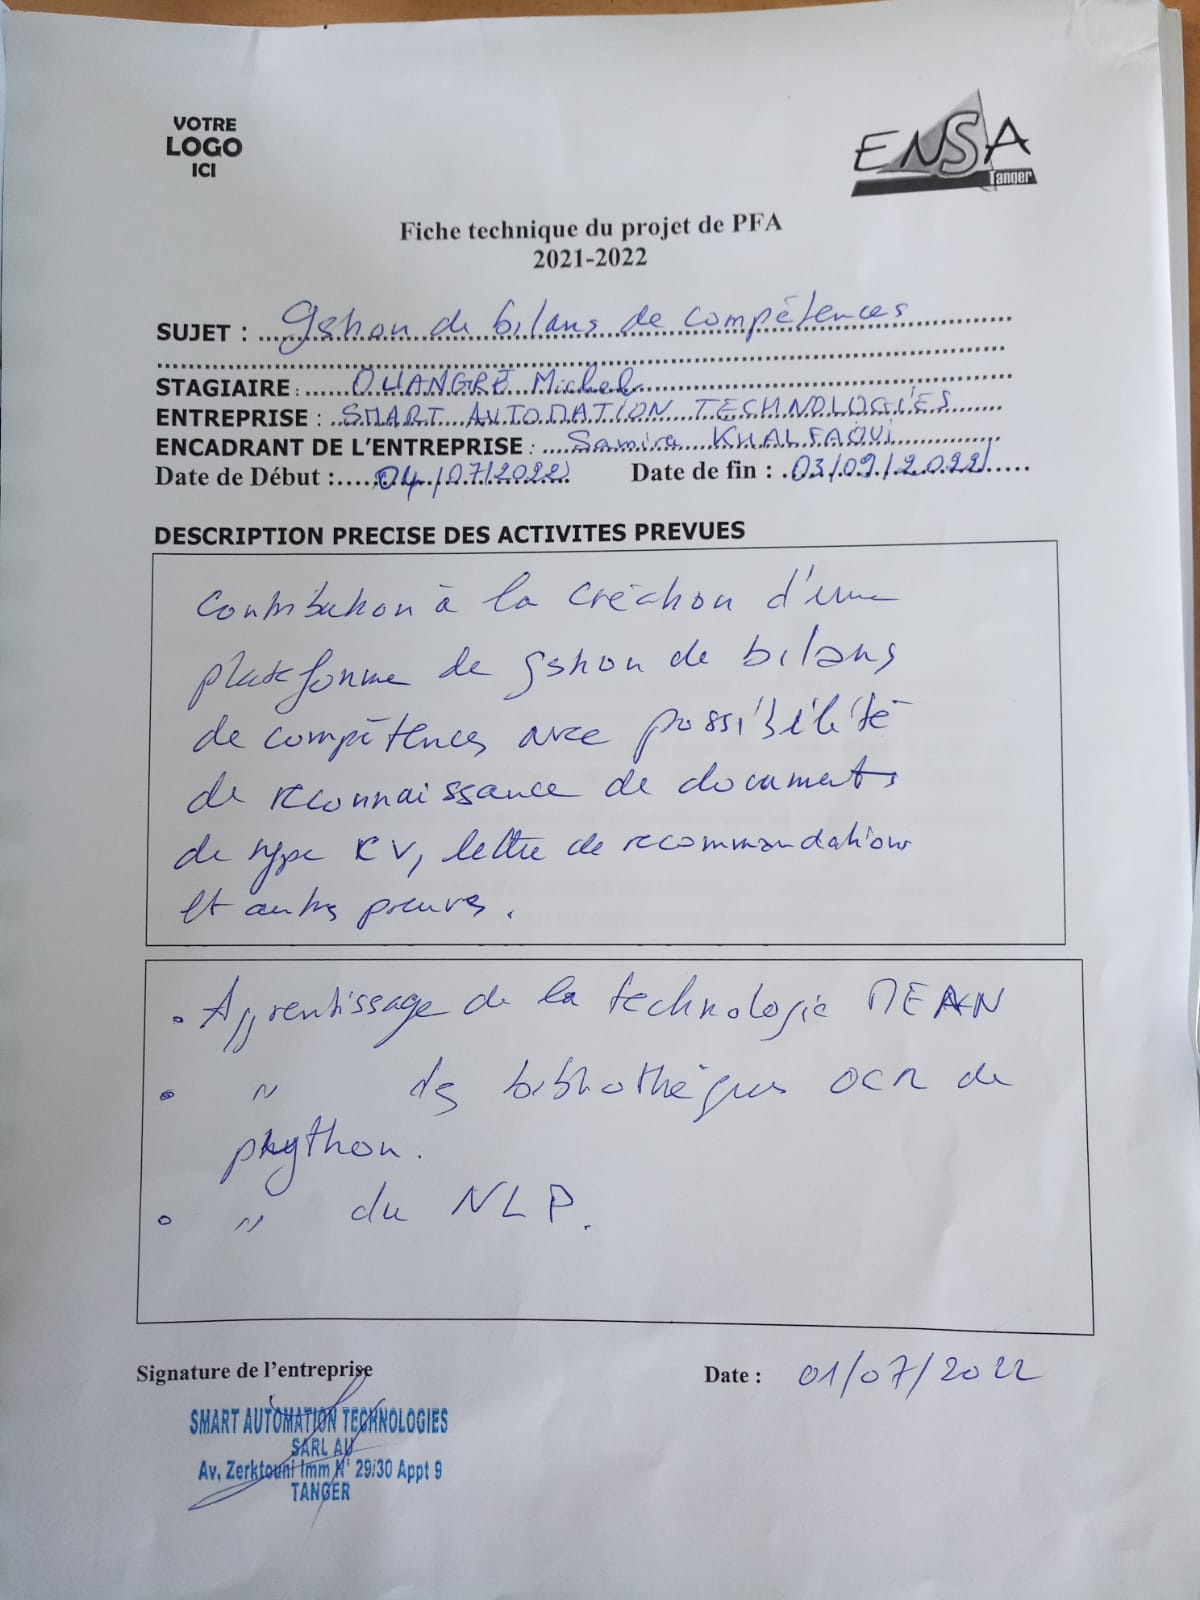 VOTRE
LOGO
ICI
ENSA
Tanger
Fiche technique du projet de PFA
2021-2022
SUJET : gestion de bilans de compétences
STAGIAIRE : OUANGRE Michel
ENTREPRISE : SMART AUTOMATION TECHNOLOGIES
ENCADRANT DE L'ENTREPRISE : Samira KHALFAOUI
Date de Début : 04/07/2022 Date de fin : 03/09/2022
DESCRIPTION PRECISE DES ACTIVITES PREVUES
Contribution à la création d'une
plateforme de gestion de bilans
de compétences avec possibilité
de reconnaissance de documents
de type CV, lettre de recommandations
et autres preuves.
• Apprentissage de la technologie MEAN
• " des bibliothèques OCR de
python.
• " du NLP.
Signature de l'entreprise
Date : 01/07/2022
SMART AUTOMATION TECHNOLOGIES
SARL AU
Av, Zerktouni Imm N° 29/30 Appt 9
TANGER